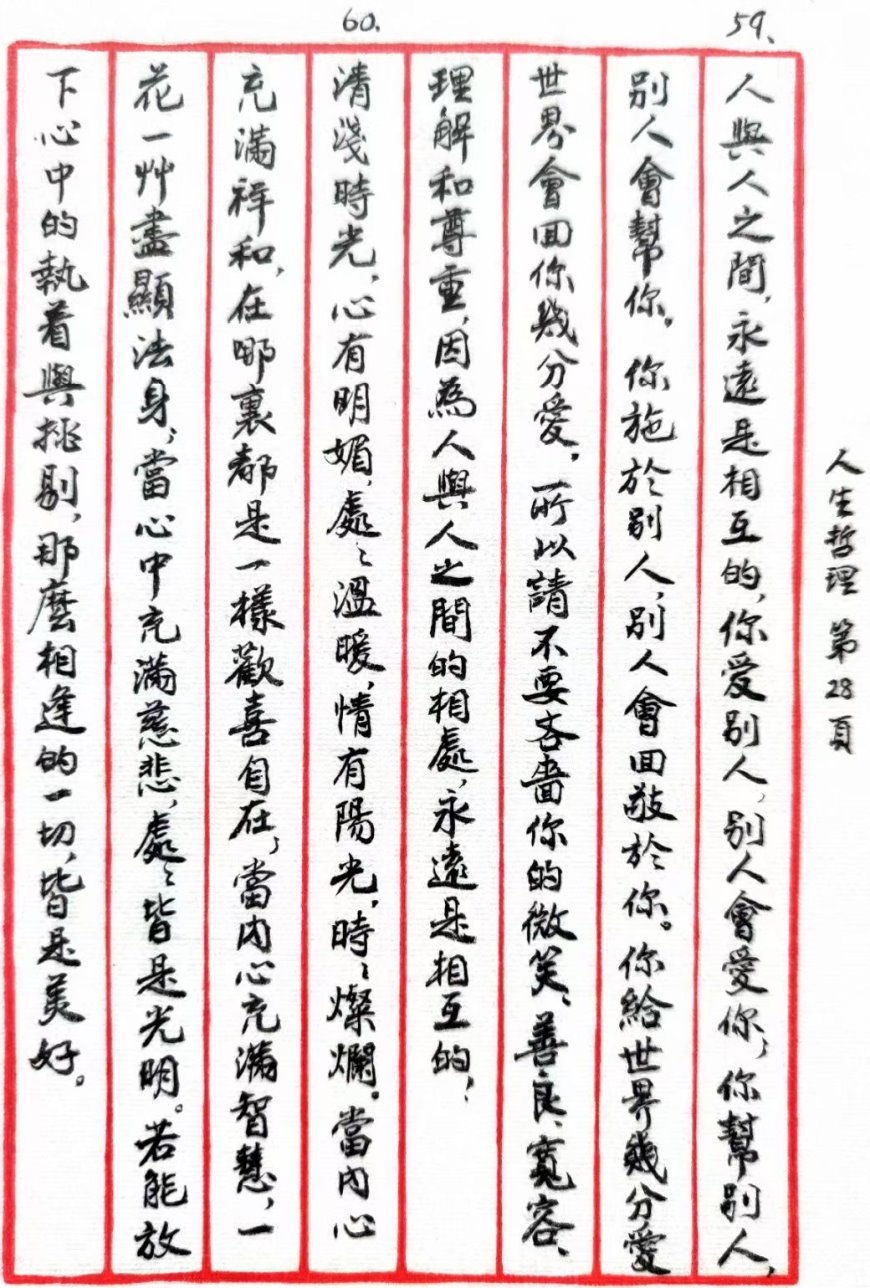 人生哲理 第28頁
59、
人與人之間,永遠是相互的,你愛别人,别人會愛你;你幫别人,
别人會幫你。你施於别人,别人會回敬於你。你給世界幾分愛
世界會回你幾分愛。所以請不要吝嗇你的微笑、善良、寬容、
理解和尊重,因為人與人之間的相處,永遠是相互的!
60.
清淺時光,心有明媚,處〻溫暖,情有陽光,時〻燦爛。當内心
充滿祥和,在哪裏都是一樣歡喜自在;當内心充滿智慧,一
花一艸盡顯法身;當心中充滿慈悲,處〻皆是光明。若能放
下心中的執着與挑剔,那麼相逢的一切,皆是美好。